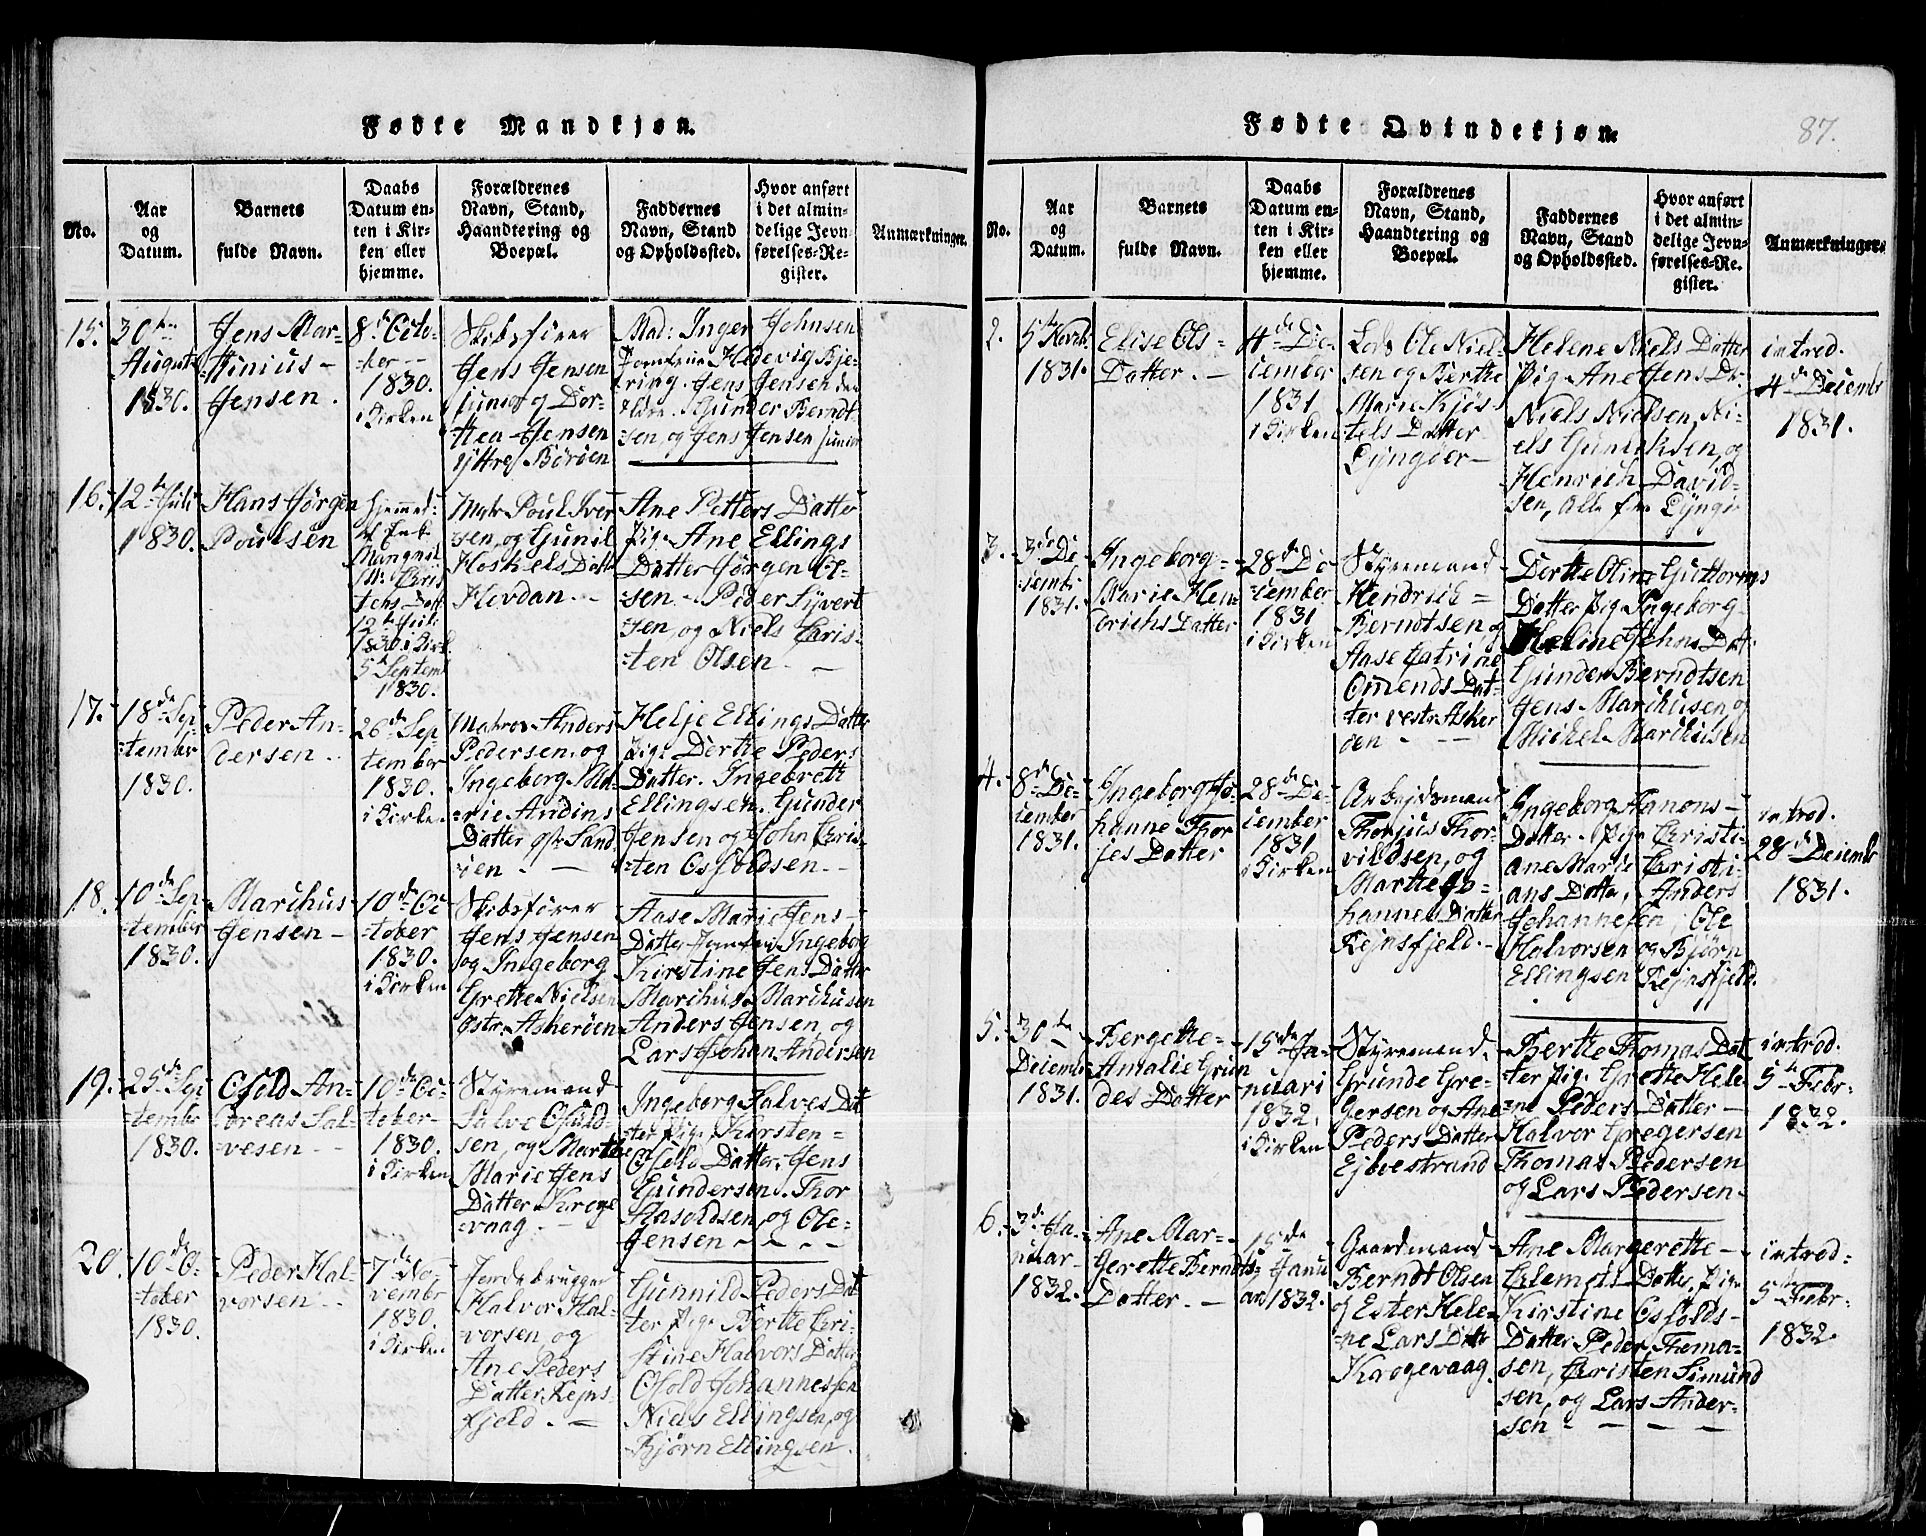 Fødte Mandkjøn.
No.
Aar
og
Datum.
Barnets
fulde Navn.
Daabs
Datum en-
ten i Kir-
ken eller
hjemme.
Forældrenes
Navn, Stand,
Haandtering og
Boepæl.
Faddernes
Navn, Stand
og Opholdssted.
Hvor anført
i det almin-
delige Jevn
førelses-Re-
gister.
Anmærkninger.
15.
30te
August
1830.
Jens Mar-
tinius
Jensen.
8de Octo-
ber
1830.
i Kirken
Skibsfører
Jens Jensen
junior og Dor-
thea Jensen
yttre Börøen
Mad: Inger Johnsen
Jomfrue Hedevig Kje-
ring. Jens Jensen den
eldre. Gunder Berndt
sen, og Jens Jensen junior
16.
12te Juli
1830.
Hans Jørgen
Poulsen
Hjemmed:
12te Juli
1830. i Kirk.
5te Septemb
1830.
Matr Poul Iver
sen, og Gunil
Hoskels Datter
Hovdan.
Ane Petters Datter
Pige Ane Ellings
Datter Jørgen Ol-
sen. Peder Syvert
sen, og Niels Chris-
ten Olsen
17.
18de Sep
tembr
1830.
Peder An-
dersen
26de Sep
tember
1830.
i Kirken
Matros Anders
Pedersen, og
Ingeborg Ma-
rie Andins
Datter østr Sand
øen.
Helje Ellings Datter
pige Dorthe Peders
Datter. Ingebreth
Ellingsen. Gunder
Jensen og John Chris-
ten Osfoldsen
18.
10de Sep
tember
1830.
Marchus
Jensen
10de Oc
tober
1830.
i Kirken
Skibsfører
Jens Jensen
og Ingeborg
Grette Nielsen
Østr. Askerøen
Aase Marie Jens
Datter Jomfrue Ingeborg
Kirstine Jens Datter
Marchus Marchusen
Anders Jensen, og
Lars Johan Andersen
19.
25de Sep
tembr
1830.
Osold An-
dreas Sal-
vesen
10de Oc
tober
1830.
i Kirken
Styremand
Salve Osuld-
sen, og Marthe
Marie Jens
Datter Kroge
vaag.
Ingeborg Salves Dat
ter pige Kirsten
Osold Datter. Jens
Gundersen. Thor
Aasoldsen, og Ole
Jensen
20.
10de O-
tober
1830.
Peder Hal-
vorsen
7de No
vembr
1830.
i Kirken
Jordebrugger
Halvor Hal-
vorsen, og
Ane Peders
Datter. Rejns-
fjeld.
Gunnild Peders Dat
ter pige Berthe Chri-
stine Halvors Datter
Osold Johannessen
Niels Ellingsen, og
Bjørn Ellingsen.
Fødte Qvindekjøn.
87.
No.
Aar
og
Datum.
Barnets
fulde Navn.
Daabs
Datum en-
ten i Kir-
ken eller
hjemme.
Forældrenes
Navn, Stand,
Haandtering og
Boepæl.
Faddernes
Navn, Stand
og Opholdssted.
Hvor anført
i det almin-
delige Jevn-
førelses-Re-
gister.
Anmærkninger.
2.
5te Novb.
1831.
Elise Ols-
Datter.
4de De-
cember
1831
i Kirken
Lods Ole Niel-
sen og Berthe
Marie Kjøs-
tels Datter
Lyngøer
Helene Niels Datter
Pig Ane Jens Dr
Niels Nielsen, Ni-
els Guniksen, og
Henrich David-
sen, Alle fra Lyngør
introd.
4de Decemb
1831.
3.
3de De
cembr
1831.
Ingeborg
Marie Hen
drichs Datter
28de De
cember
1831
i Kirken
Styremand
Hendrich
Berndtsen og
Aase Catrine
Omends Dat-
ter vestr. Asker
øen
Dorthe Oline Guttorms
Datter pig Ingeborg
Heline Johns Dat
Gunder Berndtsen
Jens Marchusen og
Michel Marchusen
4.
8de De-
cember
1831.
Ingeborg Jo-
hanne Thor
jes Datter
28de De-
cember
1831
i Kirken
Arbejdsmand
Thorjus Thor-
vildsen, og
Marthe Jo-
hannes Datter
Rejnsfjeld.
Ingeborg Aanons
Datter. pige Christi-
ane Marie Christi-
ans Datter, Anders
Johannesen, Ole
Halvorsen og Bjørn
Ellingsen Rejnsfjeld.
introd.
28de Decembr
1831.
5.
30te
Decembr
1831.
Bergethe
Amalie Grun
des Datter
15de Ja-
nuari
1832.
i Kirken
Styremand.
Grunde Gre-
gersen og Ane
Peders Datter
Ejdvestrand
Berthe Thomas Dat
ter Pige Grethe Hele
ne Peders Datter
Halvor Gregersen
Thomas Pedersen
og Lars Pedersen
introd.
5te Febr-
1832.
6.
3de Ja-
nuar
1832.
Ane Mar-
gerette Berndts
Datter.
15de
Janu
ar 1832.
Gaardmand
Berndt Olsen
og Ester Hele-
ne Lars Datter
Krogevaag.
Ane Margerette
Clemets Datter, Pige
Kirstine Osfolds
Datter Peder Thoma-
sen, Christen Simund
sen, og Lars Ander-
sen
introd
5te Febr-
1832.